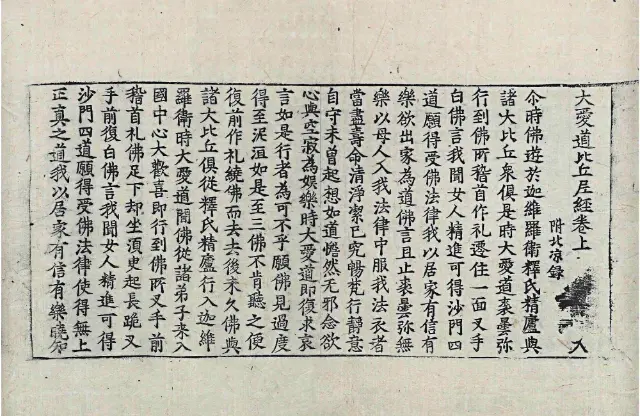 大愛道比丘尼經卷上
附北凉錄
入
尒時佛遊於迦維羅衛釋氏精廬與
諸大比丘衆俱是時大愛道裘曇弥
行到佛所稽首作礼遷住一面叉手
白佛言我聞女人精進可得沙門四
道願得受佛法律我以居家有信有
樂欲出家為道佛言且止裘曇弥無
樂以母人入我法律中服我法衣者
當盡壽命清淨潔已究暢梵行靜意
自守未曾起想如道憺然无邪念欲
心與空寂為娛樂時大愛道即復求哀
言如是行者為可不乎願佛見過度
得至泥洹如是至三佛不肯聽之便
復前作礼繞佛而去去後未久佛與
諸大比丘俱從釋氏精廬行入迦維
羅衛時大愛道聞佛從諸弟子來入
國中心大歡喜即行到佛所叉手前
稽首礼佛足下却坐須臾起長跪叉
手前復白佛言我聞女人精進可得
沙門四道願得受佛法律使得無上
正真之道我以居家有信有樂曉知